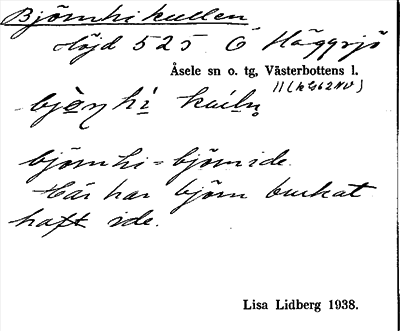 Björnhikullen
Höjd 525 Ö Häggsjö
Åsele sn o. tg, Västerbottens l.
björnhi = björnide.
Här har björn brukat
haft ide.
Lisa Lidberg 1938.